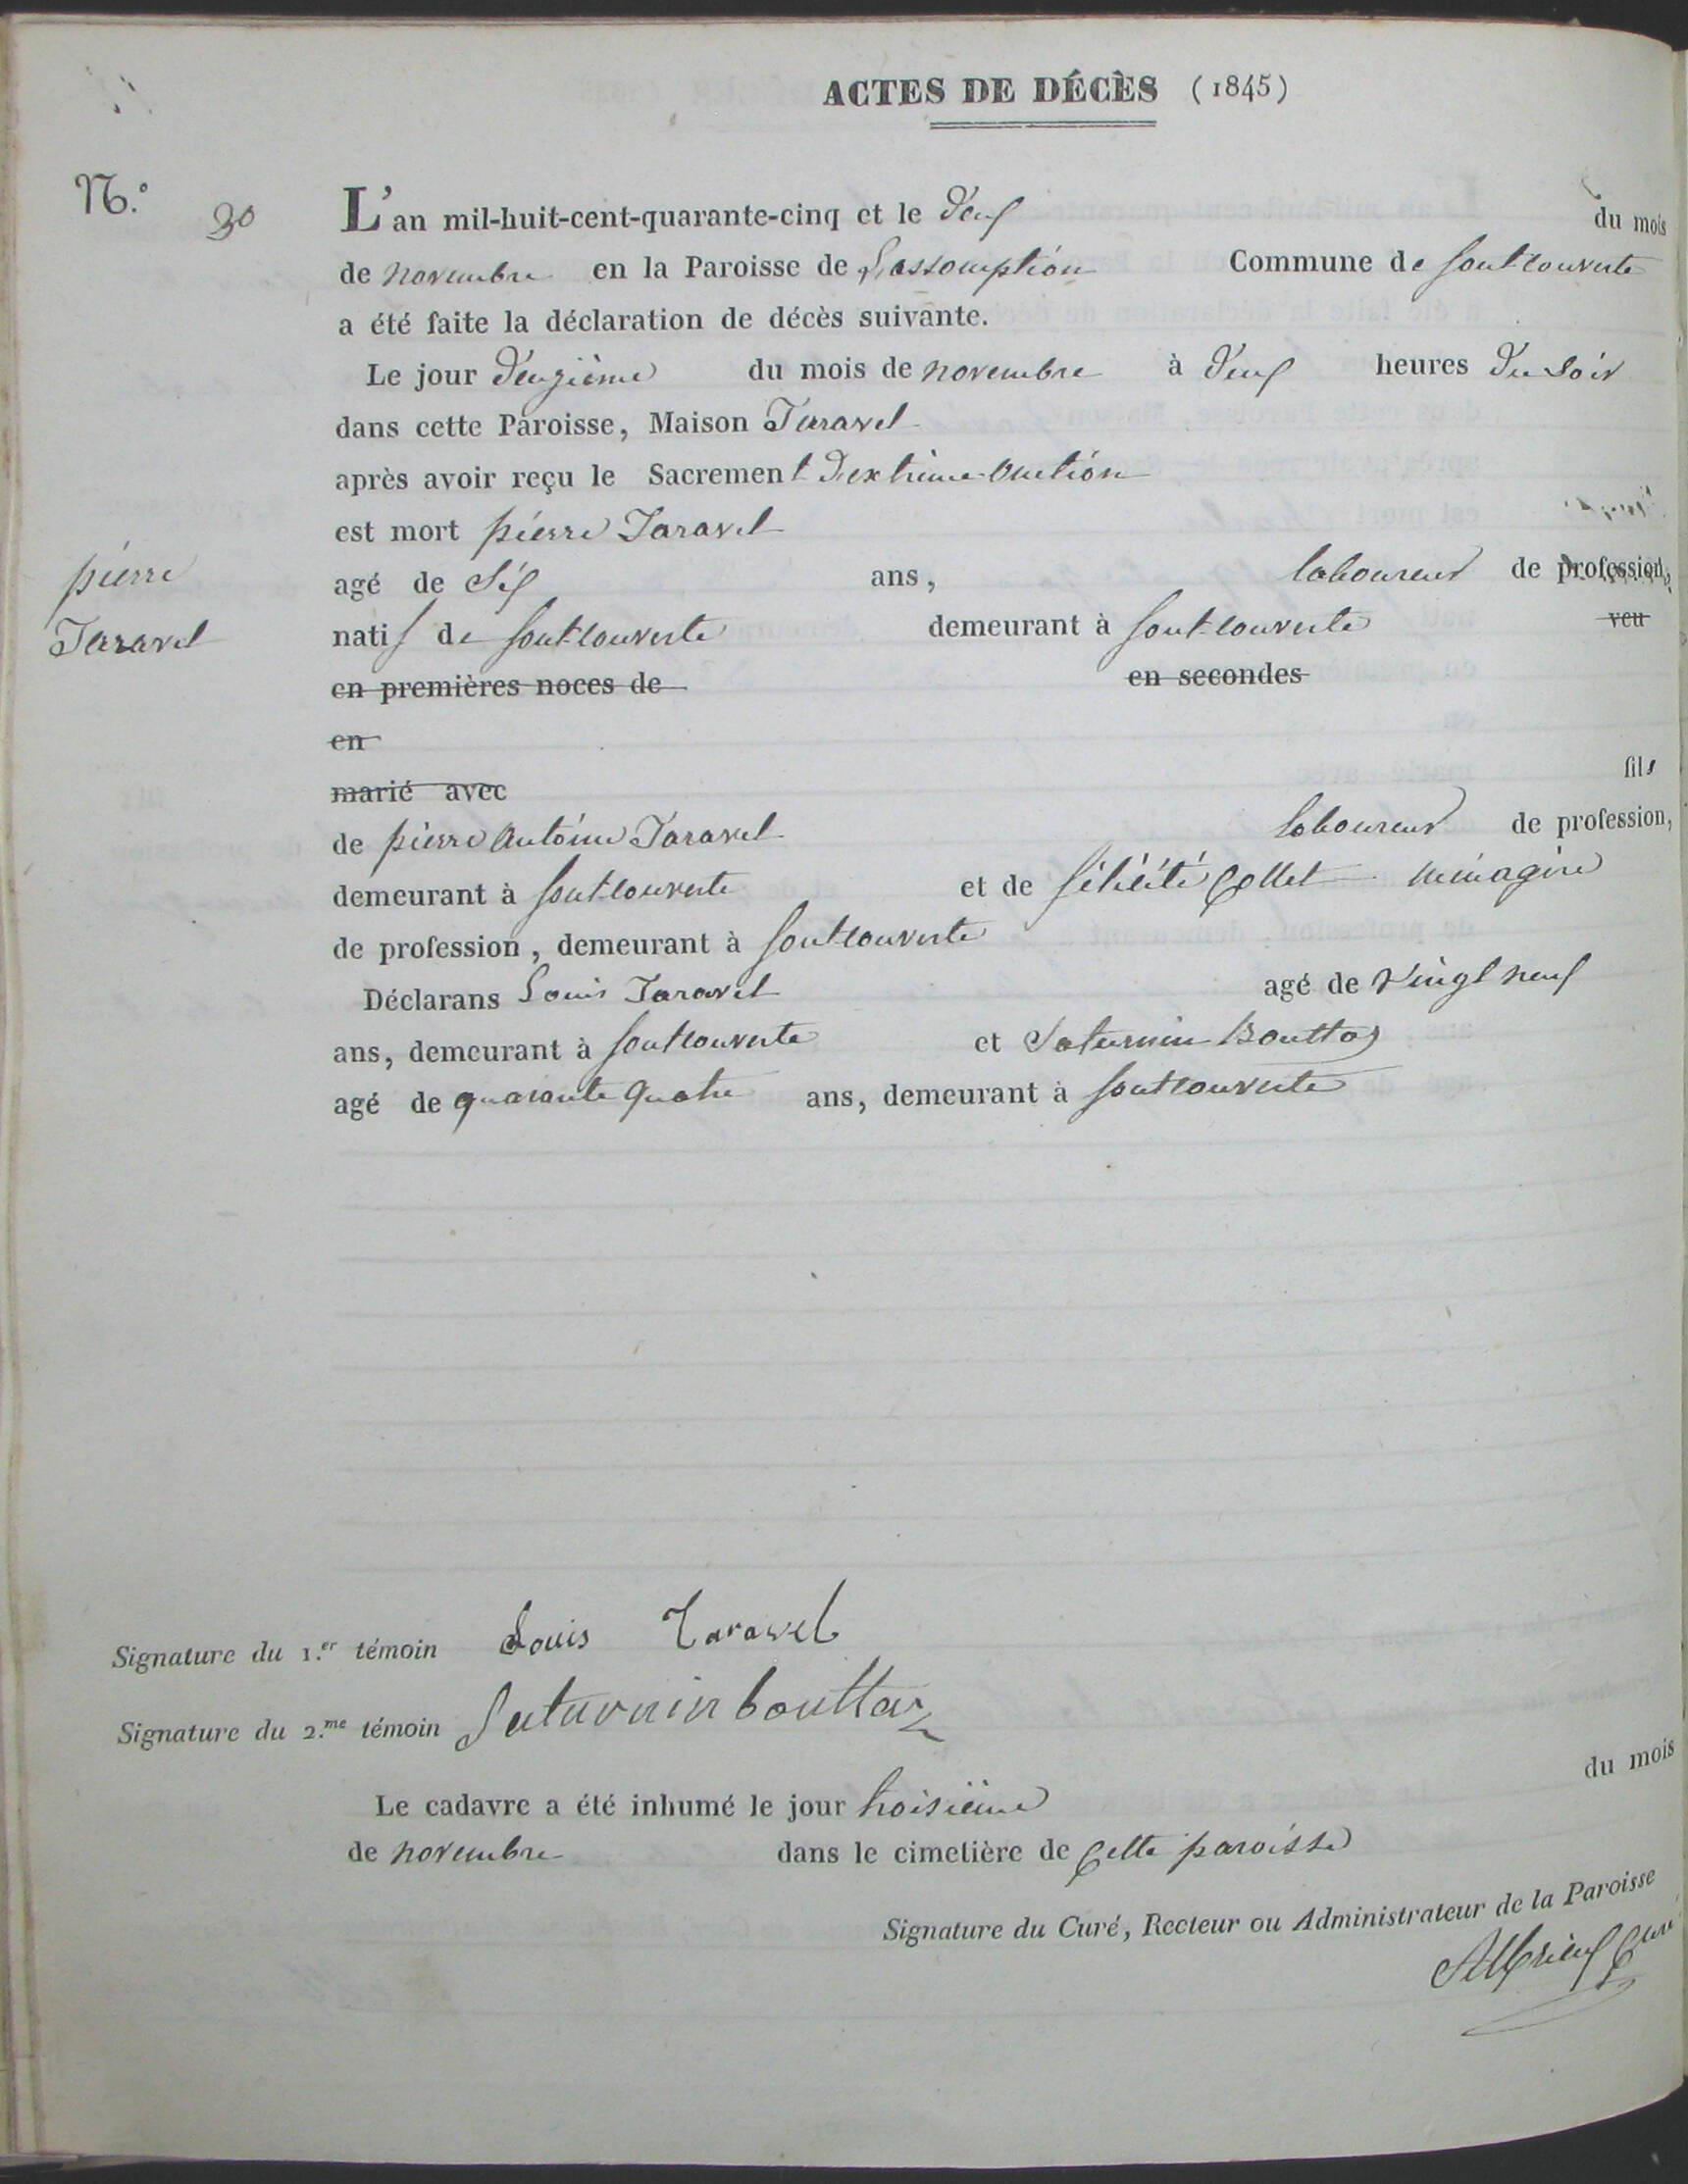 ACTES DE DÉCÈS (1845)
N.° 30
L'an mil-huit-cent-quarante-cinq et le deux du mois
de novembre en la Paroisse de L'assomption Commune de fontcouverte
a été faite la déclaration de décès suivante.
Le jour deuxième du mois de novembre à deux heures du soir
dans cette Paroisse, Maison Taravel
après avoir reçu le Sacrement d'extrême-onction
est mort pierre Taravel
pierre Taravel
agé de Six ans, laboureur de profession,
natif de fontcouverte demeurant à fontcouverte veu
en premières noces de en secondes
en
marié avec fils
de pierre Antoine Taravel laboureur de profession,
demeurant à fontcouverte et de félicité Collet ménagère
de profession, demeurant à fontcouverte
Déclarans Louis Taravel agé de vingt neuf
ans, demeurant à fontcouverte et Saturnin Bouttaz
agé de quarante quatre ans, demeurant à fontcouverte
Signature du 1.er témoin Louis Taravel
Signature du 2.me témoin Saturnin bouttaz
Le cadavre a été inhumé le jour troisième du mois
de novembre dans le cimetière de Cette paroisse
Signature du Curé, Recteur ou Administrateur de la Paroisse
Curé